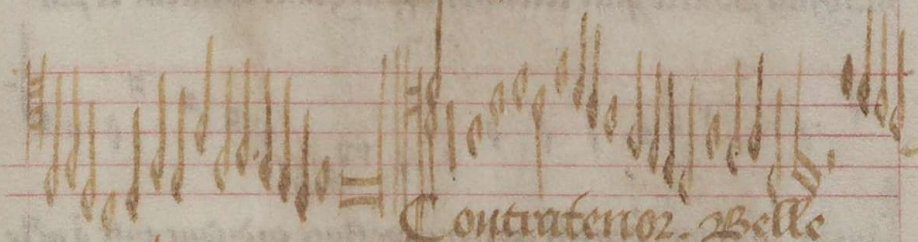 Contratenor. Belle